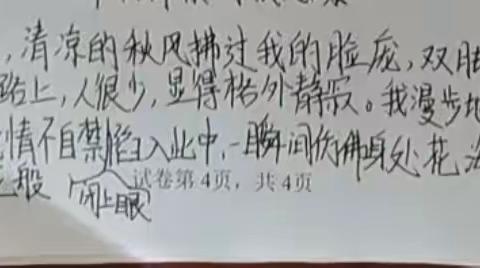 ,清凉的秋风拂过我的脸庞,双
路上,人很少,显得格外静寂。我漫步
情不自禁陷入此中,一瞬间仿佛身处花
般 闭上眼
试卷第4页,共4页